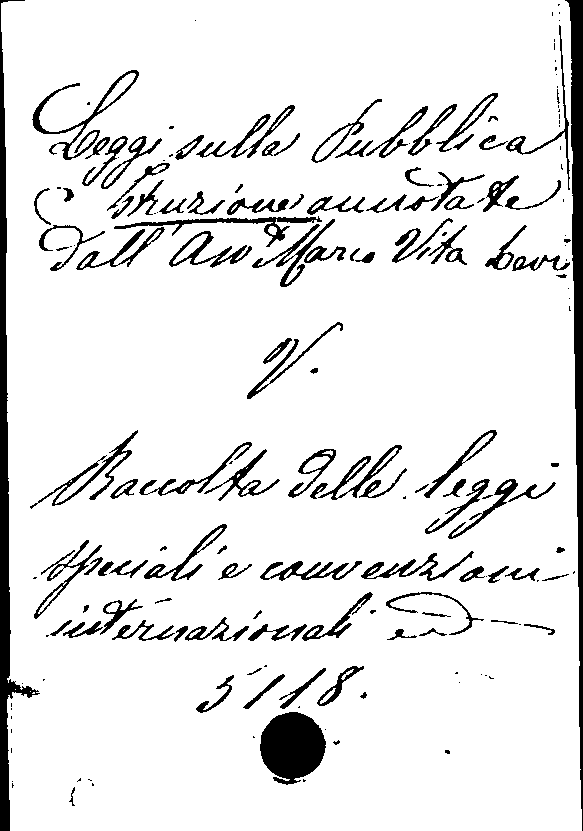 Leggi sulla Pubblica
Istruzione annotate
dall' Avv Marco Vita Levi
V.
Raccolta delle leggi
speciali e convenzioni
internazionali
5118.